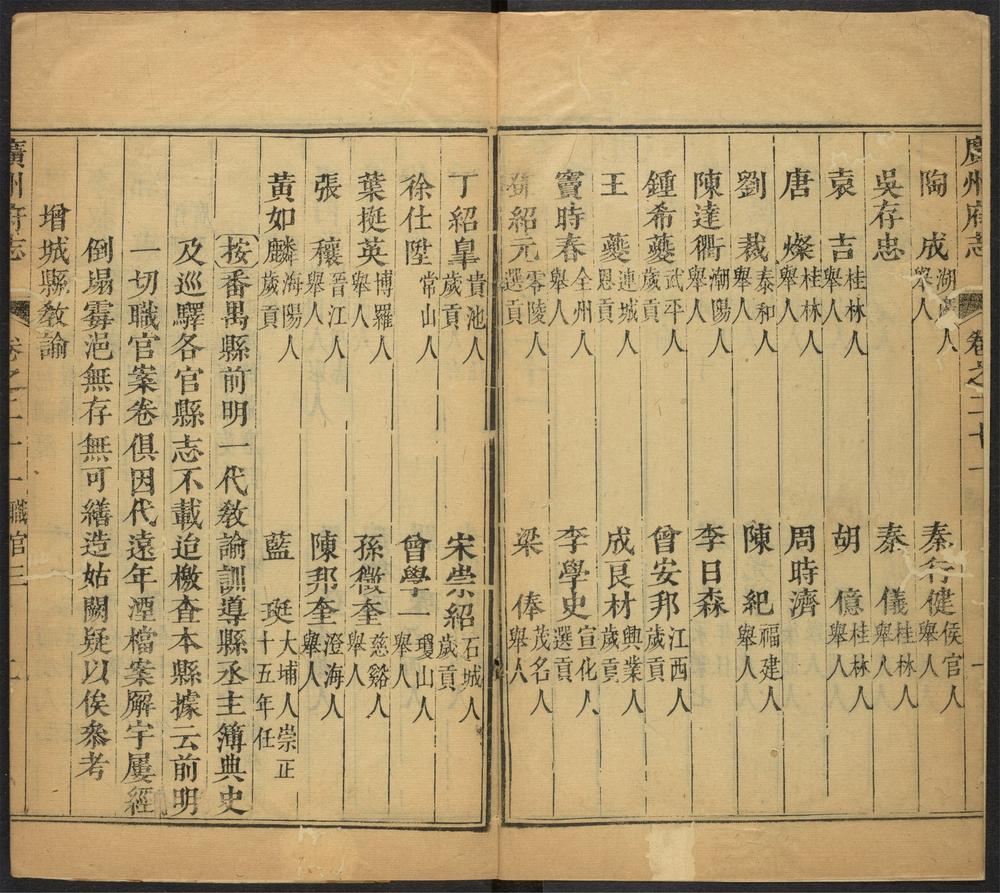 廣州府志 卷之二十一
陶成 湖廣人舉人 秦行健 侯官人舉人
吳存忠 秦儀 桂林人舉人
袁吉 桂林人舉人 胡億 桂林人舉人
唐燦 桂林人舉人 周時濟
劉裁 泰和人舉人 陳紀 福建人舉人
陳達衢 潮陽人舉人 李日森
鍾希夔 武平人歲貢 曾安邦 江西人歲貢
王夔 連城人恩貢 成艮材 興業人歲貢
竇時春 全州人舉人 李學史 宣化人選貢
紹元 零陵人選貢 梁俸 茂名人舉人
丁紹皐 貴池人歲貢 宋崇紹 石城人歲貢
徐仕陞 常山人 曾學一 瓊山人舉人
葉挺英 博羅人舉人 孫徵奎 慈谿人舉人
張穰 晉江人舉人 陳邦奎 澄海人舉人
黃如麟 海陽人歲貢 藍珽 大埔人崇正十五年任
按番禺縣前明一代教諭訓導縣丞主簿典史
及巡驛各官縣志不載迨檄查本縣據云前明
一切職官案卷俱因代遠年湮檔案廨宇屢經
倒塌霉浥無存無可繕造姑闕疑以俟叅考
增城縣教諭
廣州府志 卷之二十一 職官三